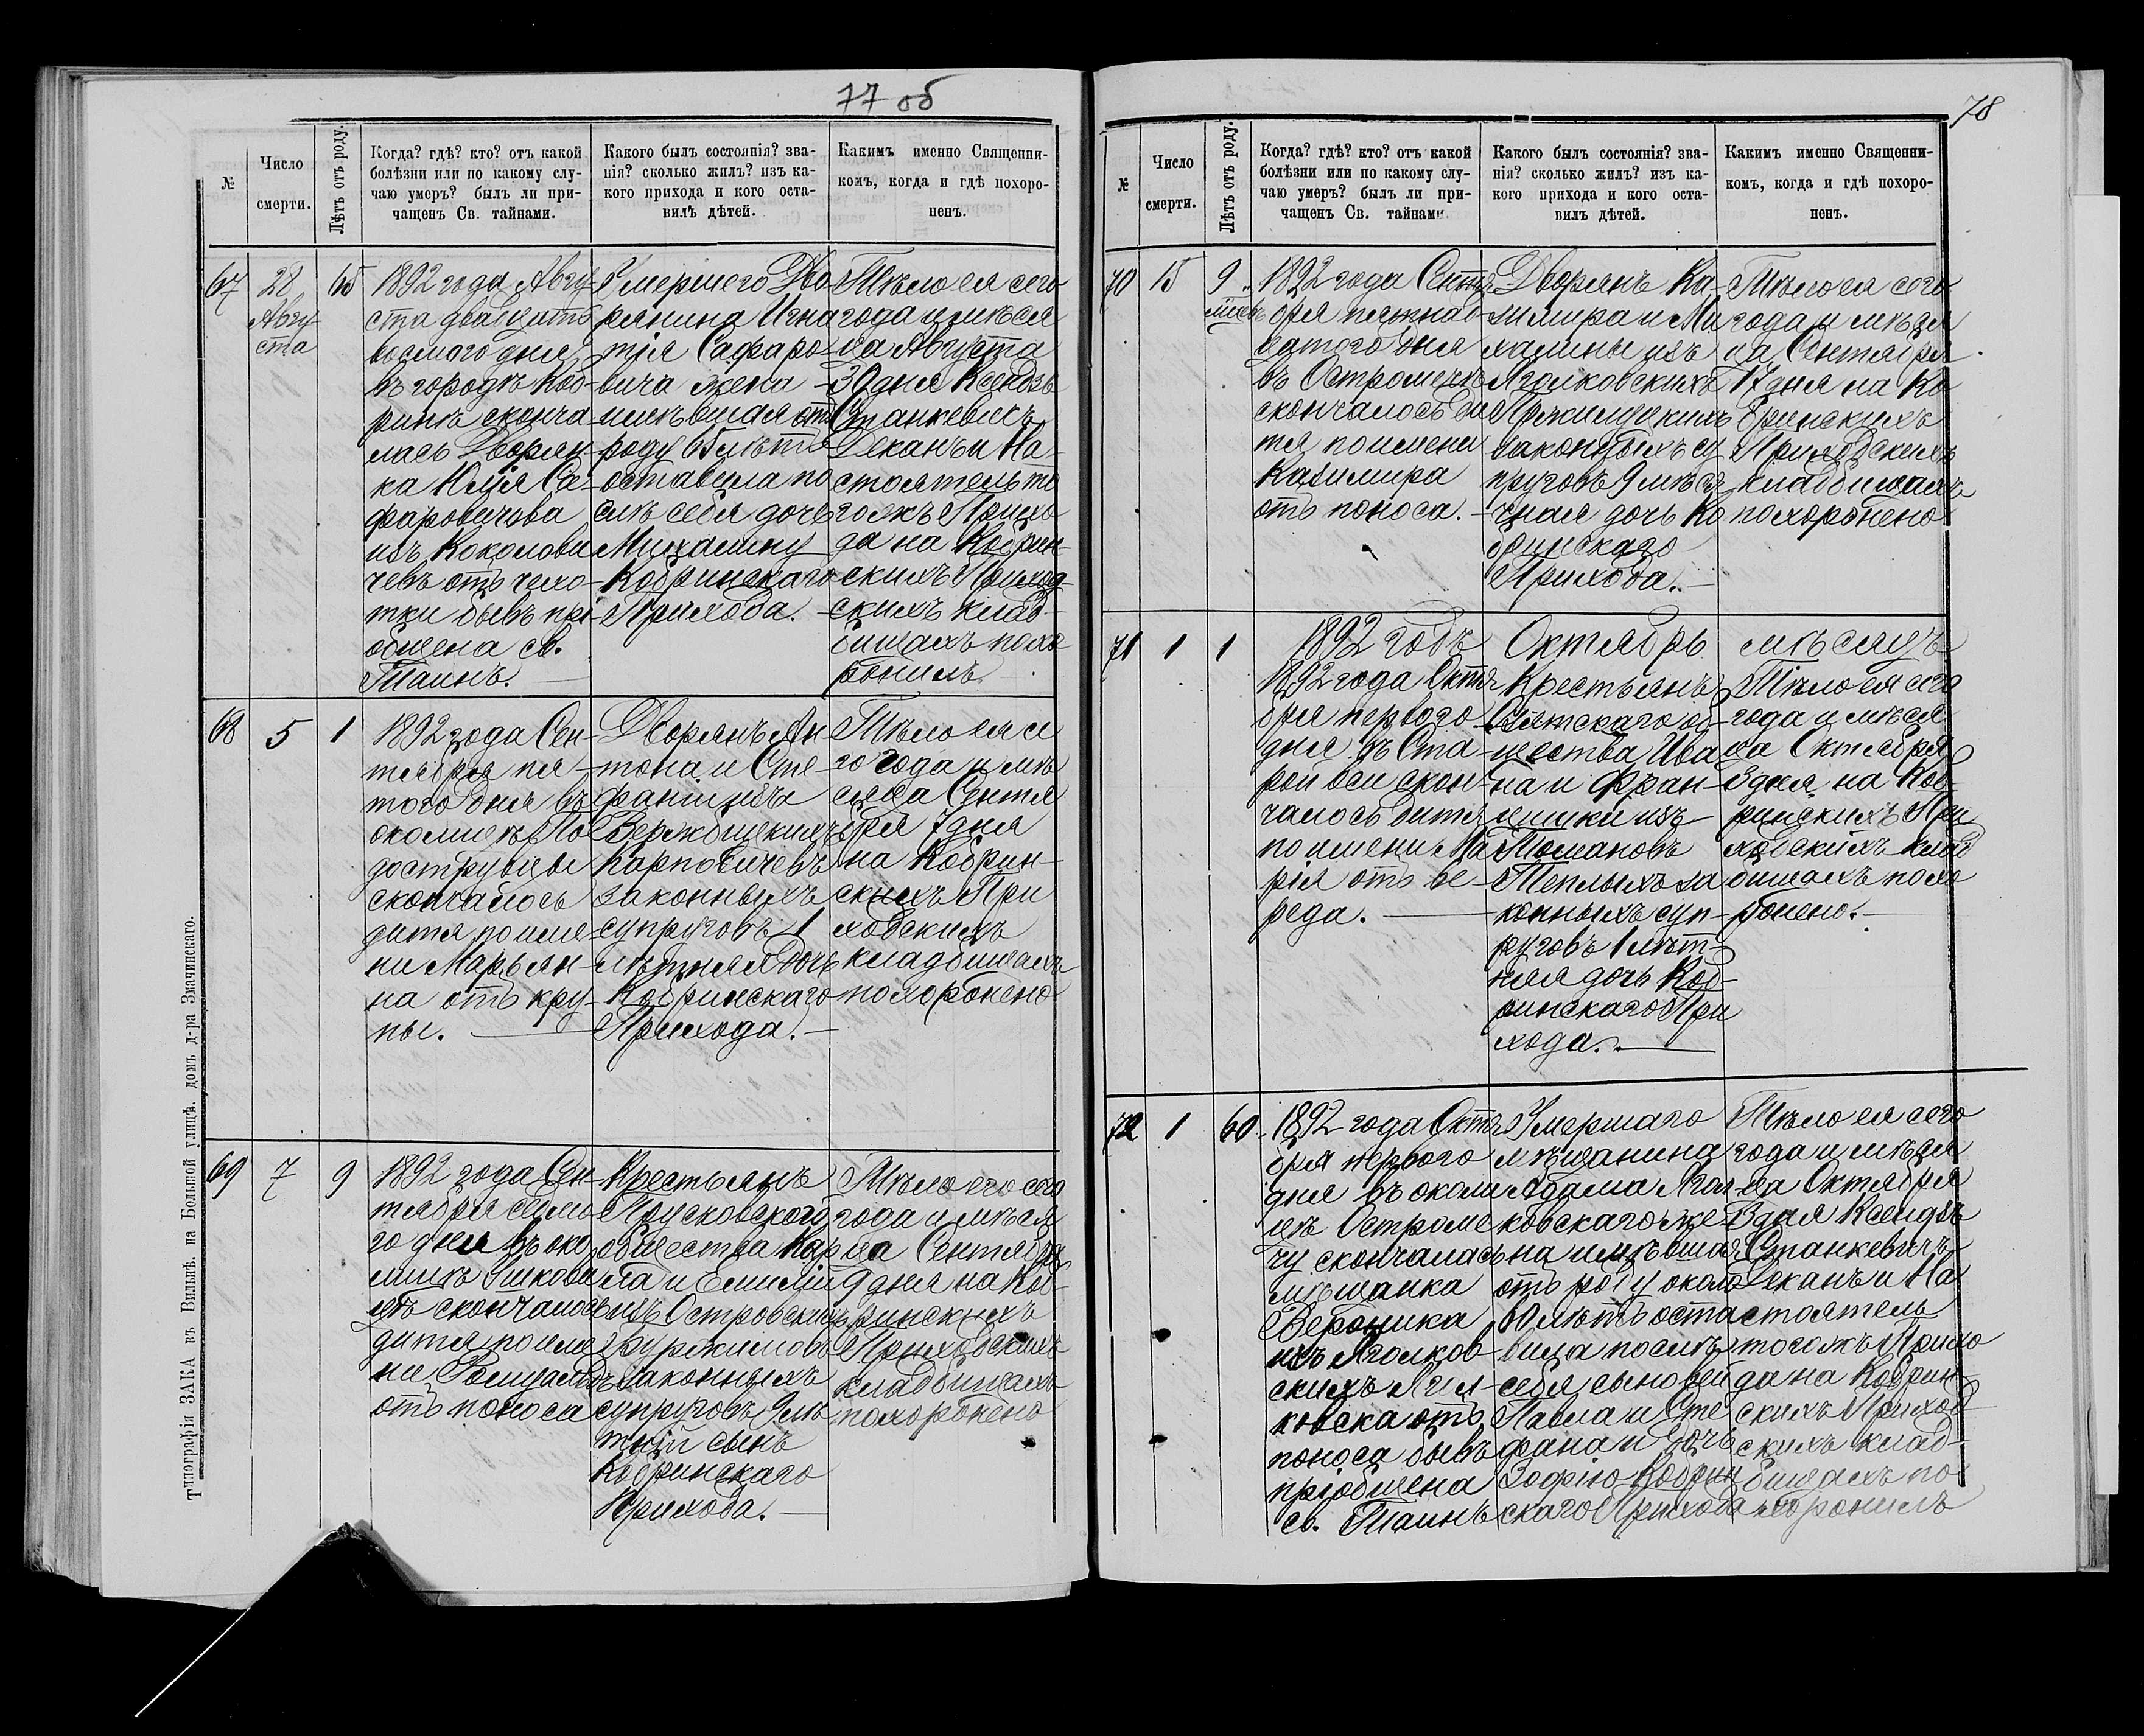 77 об
№
Число
смерти.
Лѣтъ отъ роду.
Когда? гдѣ? кто? отъ какой
болѣзни или по какому слу-
чаю умеръ? былъ ли при-
чащенъ Св. тайнами.
Какого былъ состоянія? зва-
нія? сколько жилъ? изъ ка-
кого прихода и кого оста-
вилъ дѣтей.
Какимъ именно Священни-
комъ, когда и гдѣ похоро-
ненъ.
67
28
Авгу-
ста
65
1892 года Авгу-
ста двадцать
восьмого дня
въ городѣ Коб-
ринѣ сконча
лась Дворян-
ка Юлія Са-
фаровичова
изъ Коколови
чевъ отъ чехо-
тки бывъ прі-
общена св.
Таинъ.
Умершего Дво
рянина Игна
тія Сафаро-
вича жена
имѣвшая отъ
роду 65 лѣтъ
оставила по
слѣ себя дочь
Михалину
Кобринскаго
Прихода.
Тѣло ея сего
года и мѣся
ца Августа
30 дня Ксендзъ
Станкевичъ
Деканъ и На-
стоятель то
гожъ Прихо
да на Кобрин-
скихъ Приход-
скихъ клад-
бищахъ похо-
ронилъ
68
5
1
1892 года Сен-
тября пя-
того дня въ
околицѣ По
доструцы
скончалось
дитя по име-
ни Марьян-
на отъ кру-
пы.
Дворянъ Ан
тона и Сте-
фаніи изъ
Вержбицкихъ
Карповичевъ
законныхъ
супруговъ 1
лѣтняя дочь
Кобринскаго
Прихода.
Тѣло ея се
го года и мѣ
сяца Сентя
бря 7 дня
на Кобрин-
скихъ При
ходскихъ
кладбищахъ
похоронено
69
7
9
1892 года Сен-
тября седмо
го дня въ око
лицѣ Ушкови
цѣ скончалось
дитя по име
ни Ромуальдъ
отъ поноса
Крестьянъ
Прусковского
общества Кар
ла и Емиліи
изъ Островскихъ
Буржимовъ
законныхъ
супруговъ 9 лѣ
тній сынъ
Кобринскаго
Прихода.
Тѣло его сего
года и мѣся
ца Сентября
9 дня на Коб-
ринскихъ
Приходскихъ
кладбищахъ
похоронено
Типографія ЗАКА въ Вильнѣ. на Большой улицѣ. домъ д-ра Змачинскаго.
78
№
Число
смерти.
Лѣтъ отъ роду.
Когда? гдѣ? кто? отъ какой
болѣзни или по какому слу-
чаю умеръ? былъ ли при-
чащенъ Св. тайнами
Какого былъ состоянія? зва-
нія? сколько жилъ? изъ ка-
кого прихода и кого оста-
вилъ дѣтей.
Какимъ именно Священни-
комъ, когда и гдѣ похоро-
ненъ.
70
15
9
мѣсяц
1892 года Сентя
бря пятнад
цатого дня
въ Остромечѣ
скончалось ди
тя по имени
Казимира
отъ поноса.
Дворянъ Ка-
зимира и Ми
халины изъ
Яголковскихъ
законныхъ су
пруговъ 9 мѣся
чная дочь Ко
бринскаго
Прихода.
Тѣло ея сего
года и мѣся
ца Сентября
17 дня на Ко
бринскихъ
Приходскихъ
кладбищахъ
похоронено
71
1
1
1892 годъ Октябрь мѣсяцъ
1892 года Октя
бря первого
дня въ Ста
рой веси скон-
чалось дитя
по имени Ма
рія отъ ве
реда.
Крестьянъ
общества Ива
на и Фран-
цишки изъ
Томановъ
Теплыхъ за
конныхъ суп-
руговъ 1 лѣт-
няя дочь Коб-
ринскаго При
хода.
Тѣло ея сего
года и мѣся
ца Октября
3 дня на Коб-
ринскихъ При
ходскихъ клад
бищахъ похо
ронено.
72
1
60
1892 года Октя
бря первого
дня въ околи
цѣ Остроме
чу скончалась
мѣщанка
Вероника
изъ Яголков-
скихъ Ягел-
ковска отъ
поноса бывъ
пріобщена
св. Таинъ
Умершаго
мѣщанина
Адама Ягел-
ковскаго же
на имѣвшая
отъ роду около
60 лѣтъ оста
вила послѣ
себя сыновей
Павла и Сте
фана и дочь
Зофію Кобрин
скаго Прихода
Тѣло ея сего
года и мѣся
ца Октября
3 дня Ксендзъ
Станкевичъ
Деканъ и На
стоятель
тогожъ Прихо
да на Кобрин-
скихъ Приход-
скихъ клад-
бищахъ по-
хоронилъ